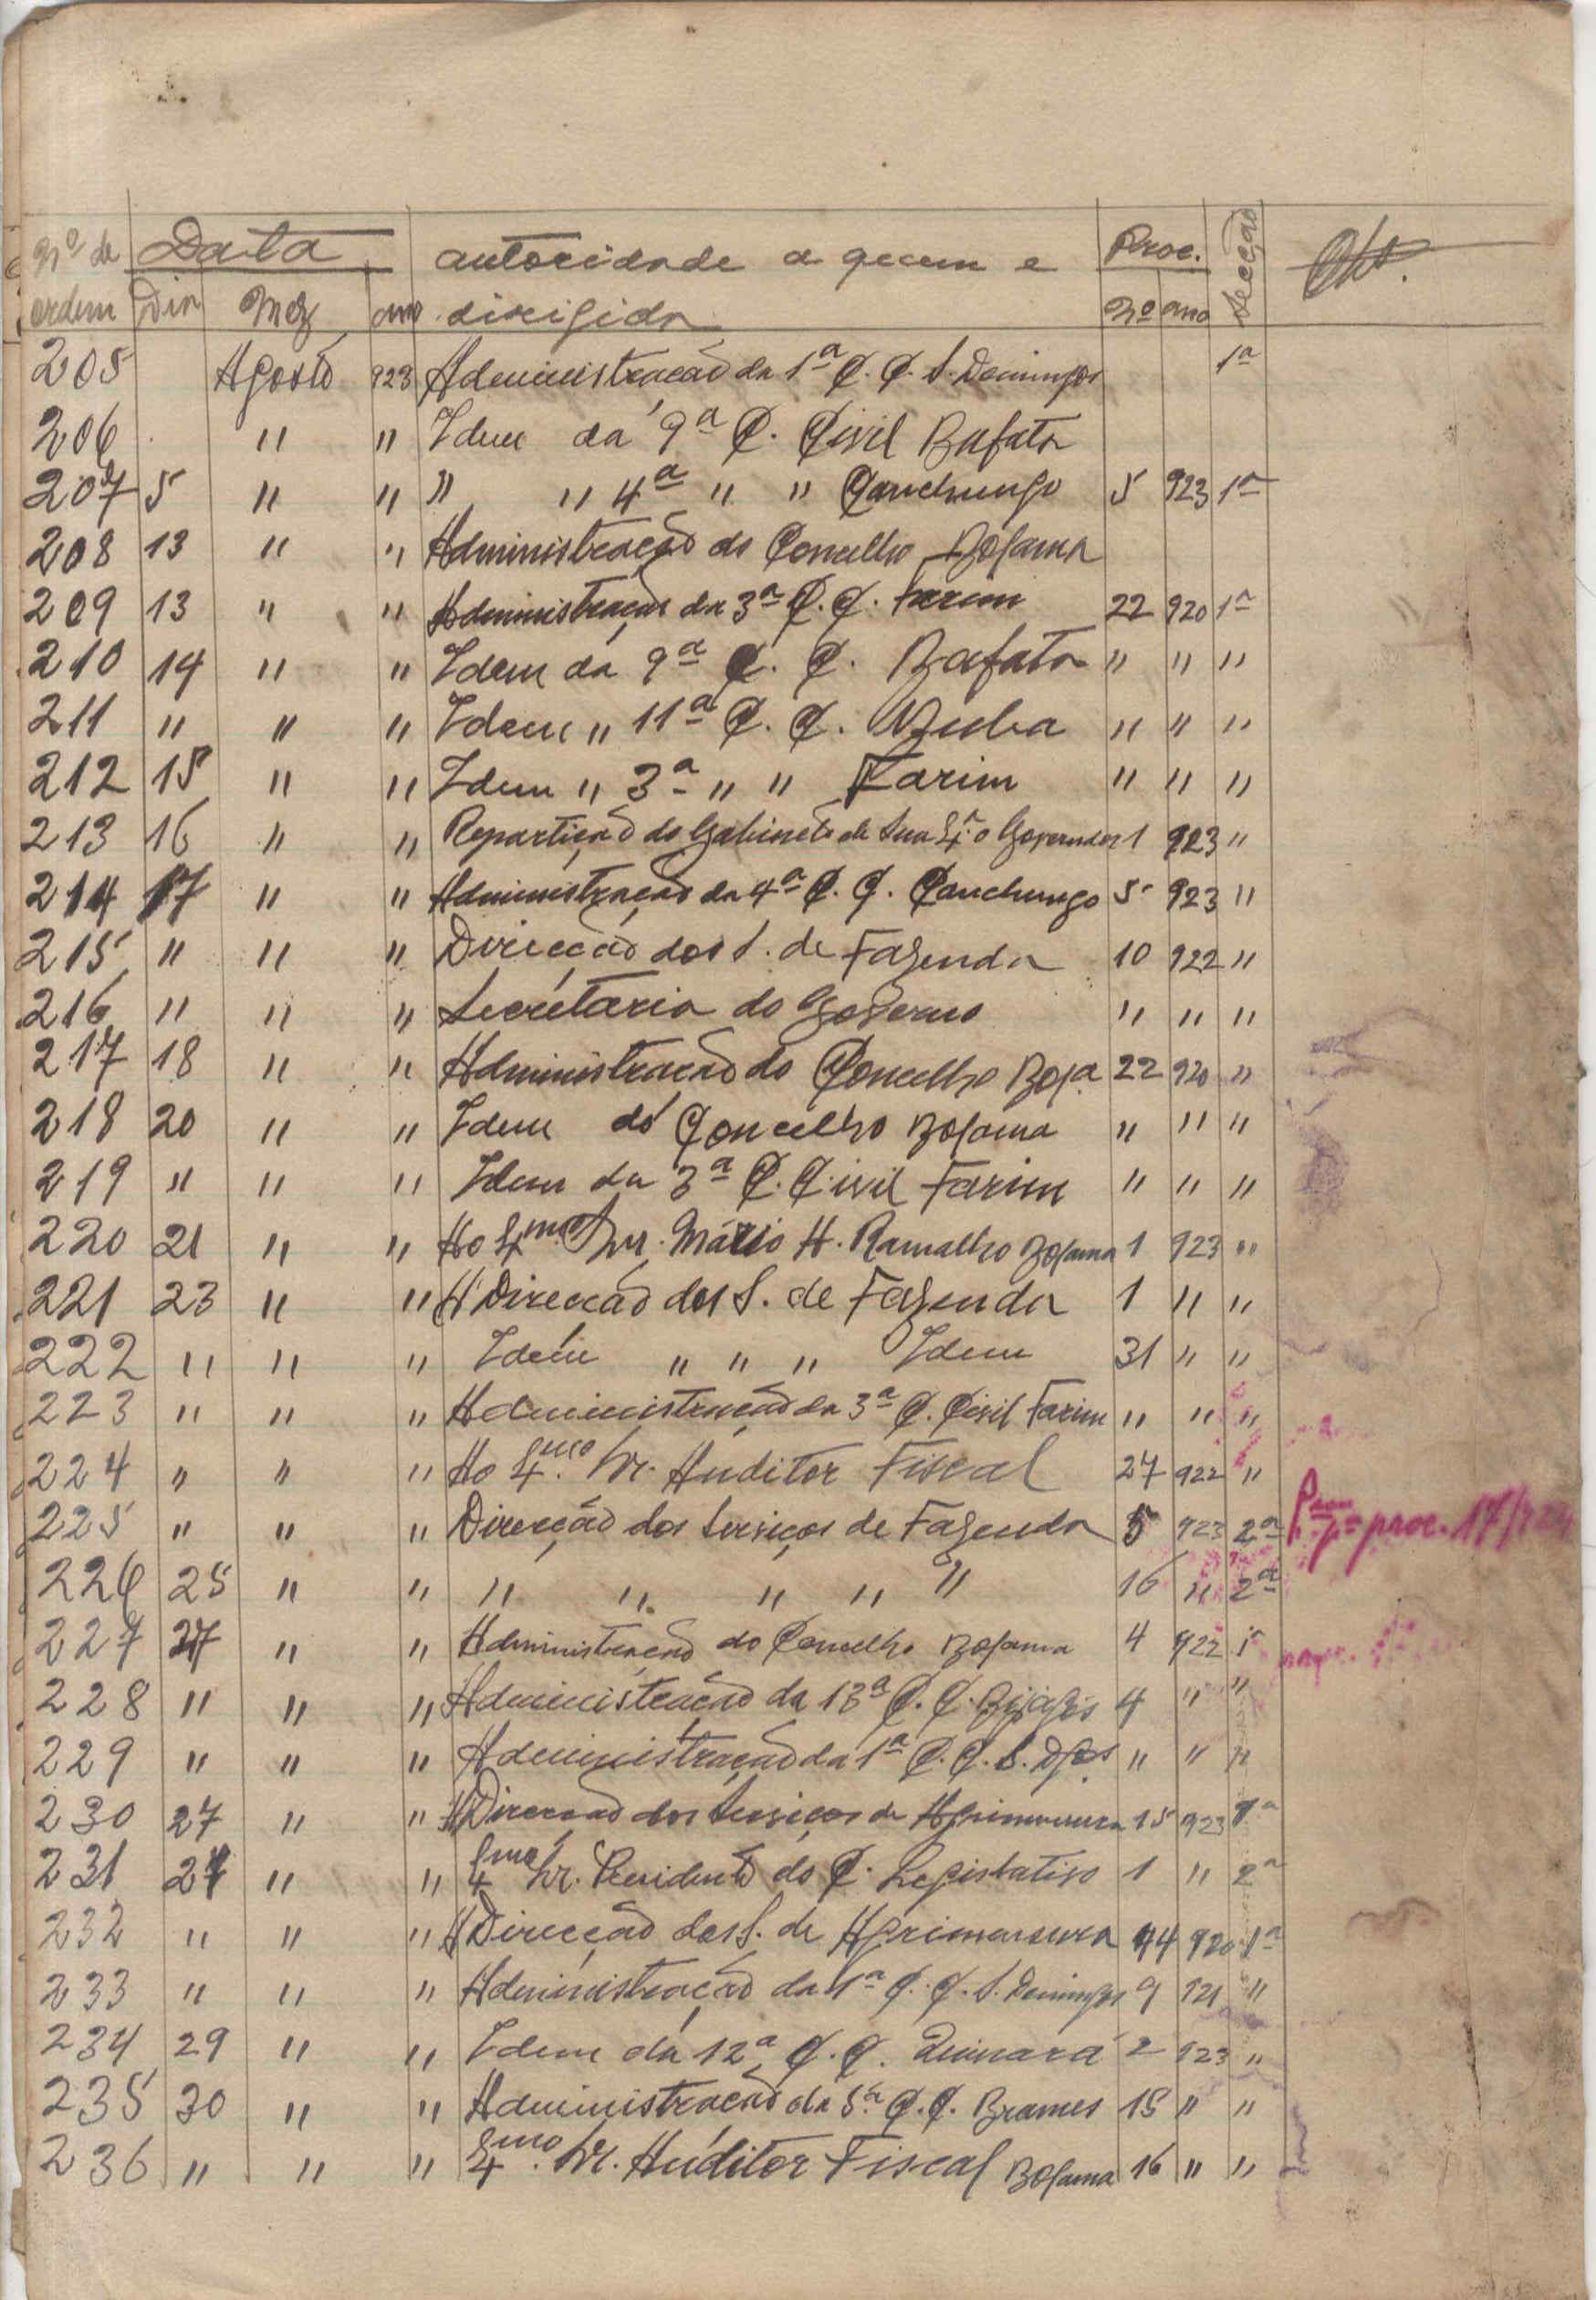 Nº de Data autoridade a quem e Proc. Secção Obs.
ordem Dia Mez ano dirigida nº ano
205 Agosto 923 Administração da 1ª C. C. S. Domingos 1ª
206 " " Idem da 9ª C. Civil Bafata
207 5 " " " " 4ª " " Canchungo 5 923 1ª
208 13 " " Administração do Concelho Bolama
209 13 " " Administração da 3ª C. C. Farim 22 920 1ª
210 14 " " Idem da 9ª C. C. Bafata " " "
211 " " " Idem " 11ª C. C. Buba " " "
212 15 " " Idem " 3ª " " Farim " " "
213 16 " " Repartição do Gabinete de Sua Exª o Governador 1 923 "
214 17 " " Administração da 4ª C. C. Canchungo 5 923 "
215 " " " Direcção dos S. de Fazenda 10 922 "
216 " " " Secretaria do Governo " " "
217 18 " " Administração do Concelho Bola 22 920 "
218 20 " " Idem do Concelho Bolama " " "
219 " " " Idem da 3ª C. Civil Farim " " "
220 21 " " Ao Exmo Snr. Mário H. Ramalho Bolama 1 923 "
221 23 " " A Direcção dos S. de Fazenda 1 " "
222 " " " Idem " " " Idem 31 " "
223 " " " Administração da 3ª C. Civil Farim " " "
224 " " " Ao Exmo. Sr. Auditor Fiscal 27 922 "
225 " " " Direcção dos Serviços de Fazenda 5 923 2ª proc. 17/
226 25 " " " " " " " 16 " 2ª
227 27 " " Administração do Concelho Bolama 4 922 1ª
228 " " " Administração da 13ª C. C. Bijagós 4 " "
229 " " " Administração da 1ª C. C. S. Dgos " " "
230 27 " " A Direcção dos Serviços de Agrimensura 15 923 1ª
231 27 " " Exmo Sr. Presidente do C. Legislativo 1 " 2ª
232 " " " A Direcção dos S. de Agrimensura 44 920 1ª
233 " " " Administração da 1ª C. C. S. Domingos 9 921 "
234 29 " " Idem da 12ª C. C. Quinara 2 923 "
235 30 " " Administração da 5ª C. C. Brames 15 " "
236 " " " Exmo. Sr. Auditor Fiscal Bolama 16 " "